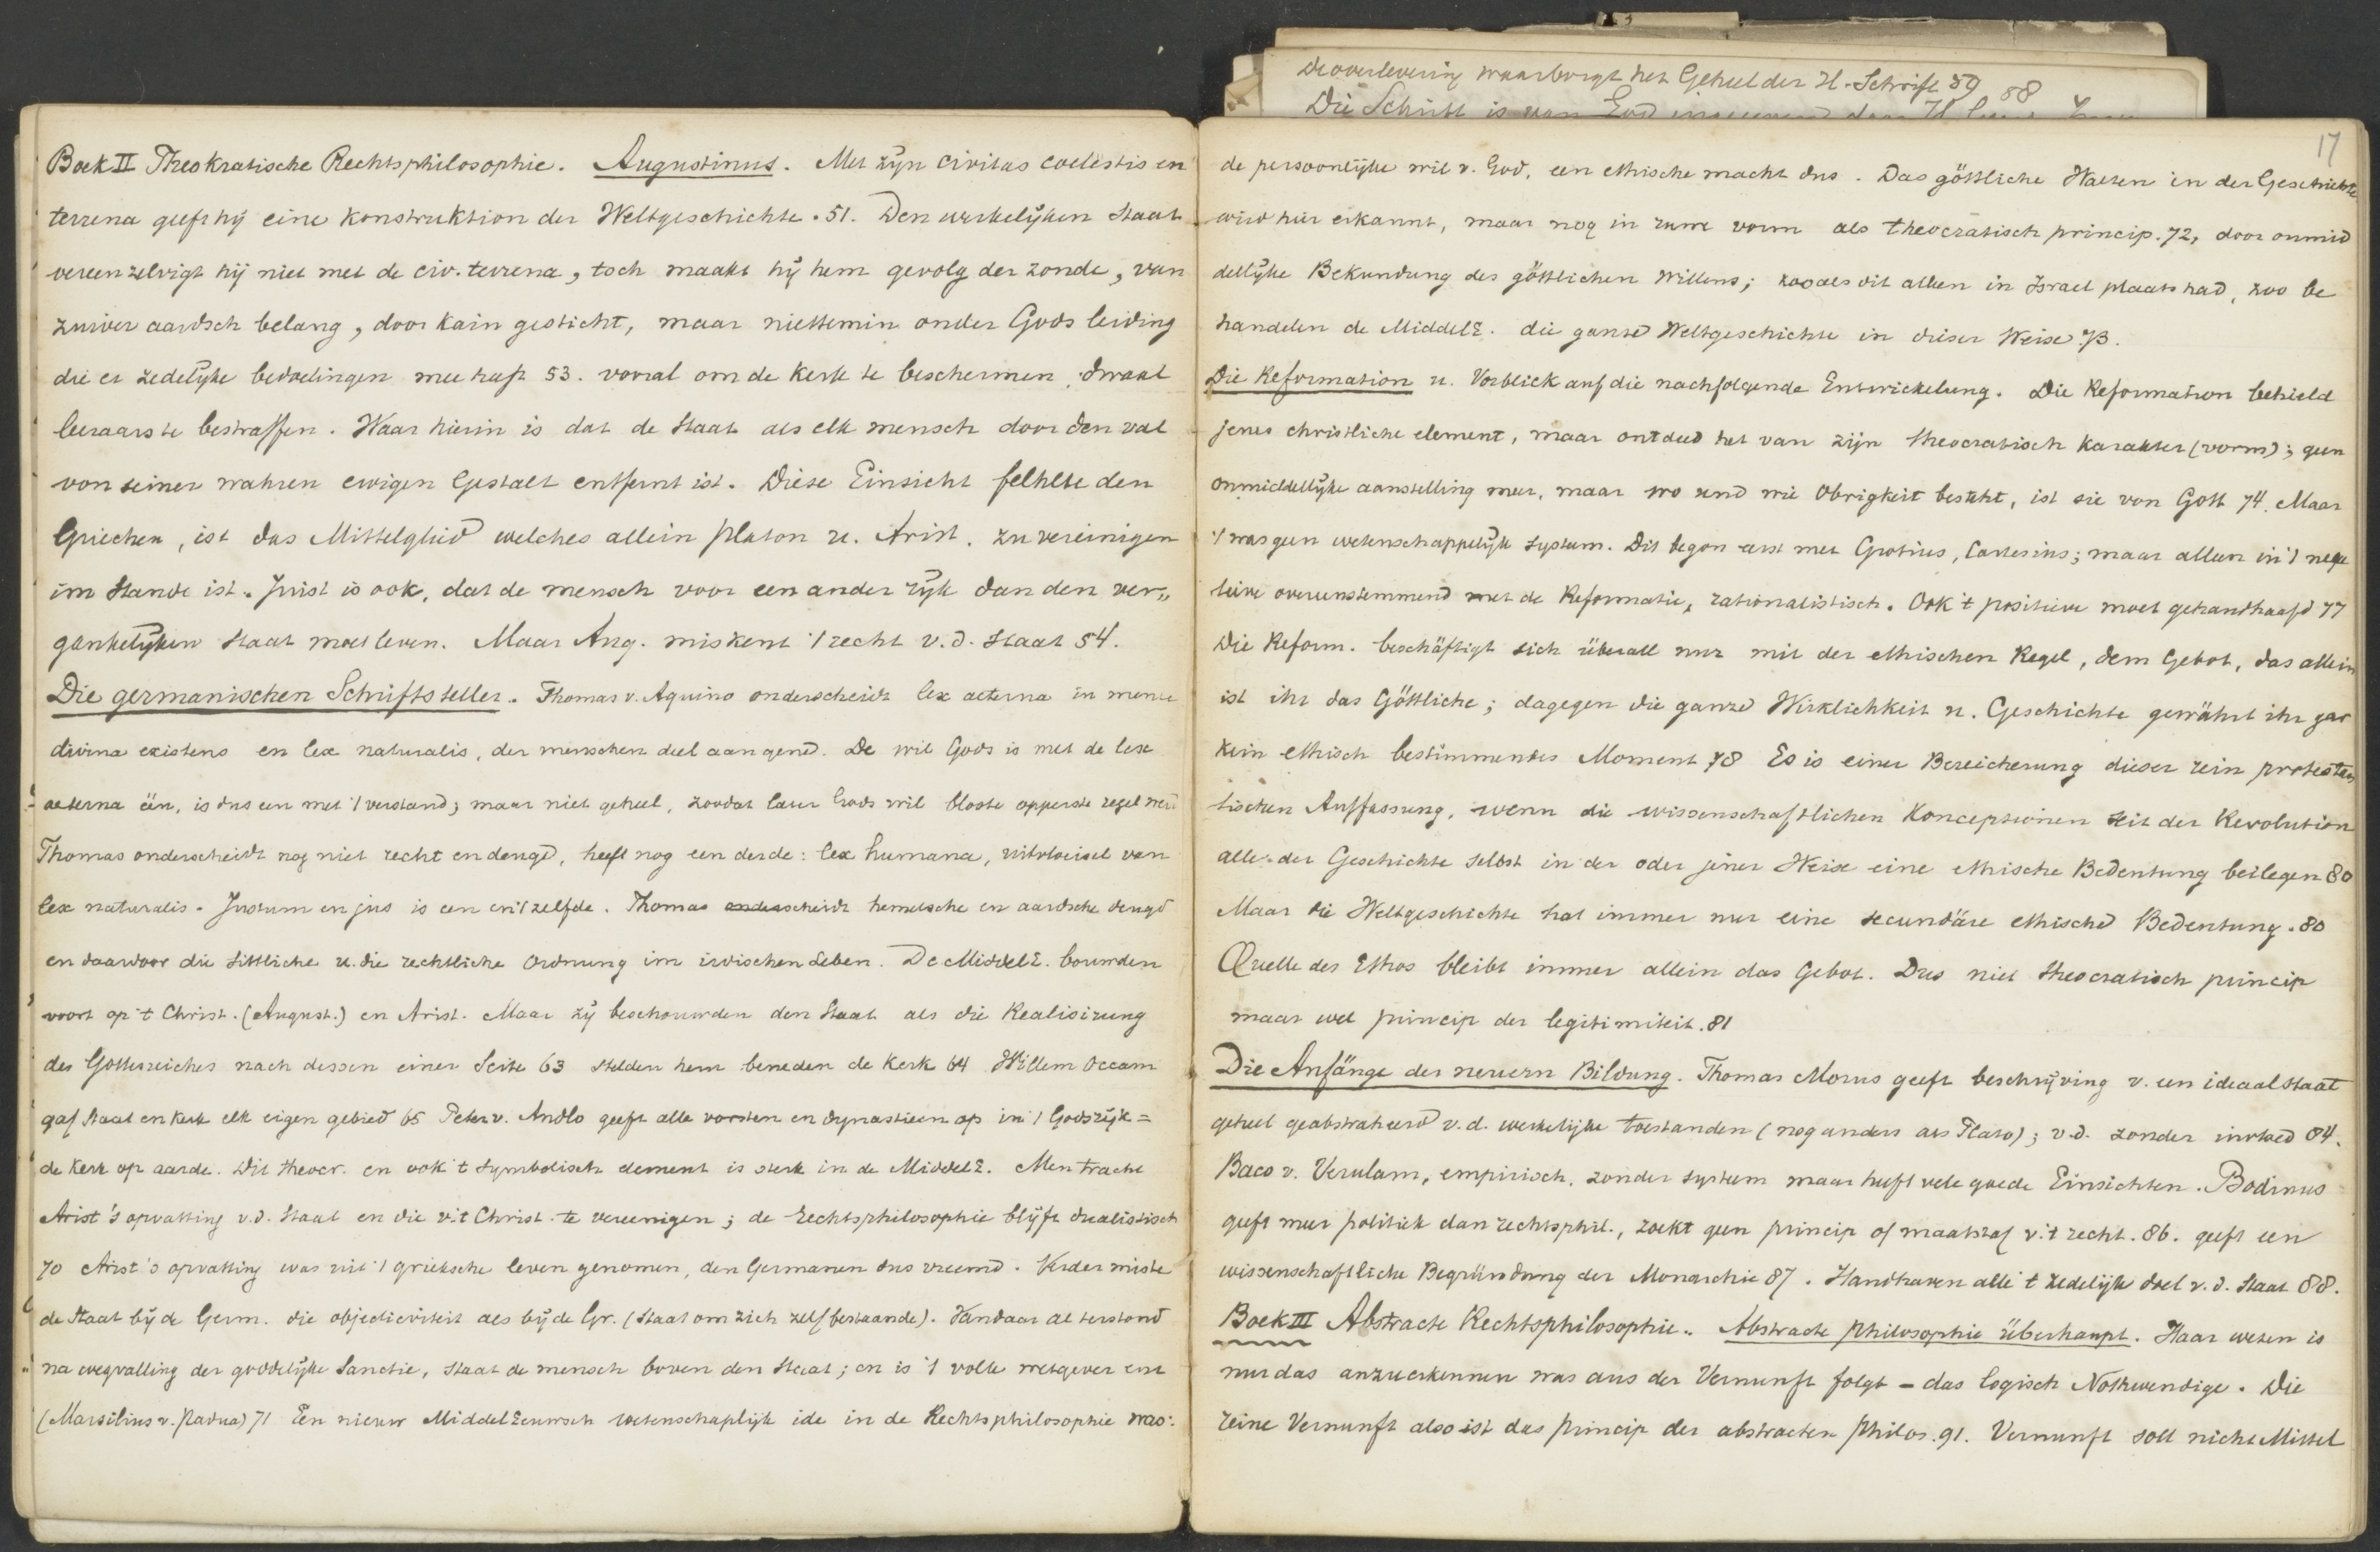 De overlevering waarborgt het Geheel der H. Schrift 59 58
Die Schrift is van God
Boek II Theokratische Rechtsphilosophie. Augustinus. Met zijn civitas coelestis en
terrena geeft hij eine Konstruktion der Weltgeschichte. 51. Den werkelijken Staat
vereenzelvigt hij niet met de civ. terrena, toch maakt hij hem gevolg der zonde, van
zuiver aardsch belang, door Kain gesticht, maar niettemin onder Gods leiding
die er zedelijke bedoelingen mee heeft 53. vooral om de Kerk te beschermen, dwaal
leeraars te bestraffen. Waar hierin is dat de Staat als elk mensch door den val
von seiner wahren ewigen Gestalt entfernt ist. Diese Einsicht fehlte den
Griechen, ist das Mittelglied welches allein Platon u. Arist. zu vereinigen
im Stande ist. Juist is ook, dat de mensch voor een ander rijk dan den ver„
gankelijken Staat moet leven. Maar Aug. miskent 't recht v.d. Staat 54.
Die germanischen Schriftsteller. Thomas v. Aquino onderscheidt lex aeterna in mente
divina existens en lex naturalis, der menschen deel aangend. De wil Gods is met de lex
aeterna één, is dus een met 't verstand; maar niet geheel, zoodat later Gods wil bloote opperste regel werd
Thomas onderscheidt nog niet recht en deugd, heeft nog een derde: lex humana, uitvloeisel van
lex naturalis. Justum en jus is een en 't zelfde. Thomas onderscheidt hemelsche en aardsche deugd
en daardoor die sittliche u. die rechtliche Ordnung im irdischen Leben. De MiddelE. bouwden
voort op 't Christ. (August.) en Arist. Maar zij beschouwden den Staat als die Realisirung
des Gottesreiches nach dessen einer Seite 63 stelden hem beneden de Kerk 64 Willem Occam
gaf Staat en Kerk elk eigen gebied 65 Peter v. Andlo geeft alle vorsten en dynastieen op in 't Godsrijk =
de Kerk op aarde. Dit theocr. en ook 't symbolisch element is sterk in de MiddelE. Men tracht
Arist's opvatting v.d. Staat en die v. 't Christ. te vereenigen; de Rechtsphilosophie blijft dualistisch
70 Arist's opvatting was uit 't grieksche leven genomen, den Germanen dus vreemd. Verder miste
de Staat bij de Germ. die objectiviteit als bij de Gr. (Staat om zich zelf bestaande). Vandaar al terstond
na wegvalling der goddelijke Sanctie, staat de mensch boven den Staat; en is 't volk wetgever enz
(Marsilius v. Padua) 71 Een nieuw MiddelEeuwsch wetenschaplijk ide in de Rechtsphilosophie was:
17
de persoonlijke wil v. God, een ethische macht dus. Das göttliche Walten in der Geschichte
wird hier erkannt, maar nog in ruwe vorm als theocratisch princip. 72, door onmid
dellijke Bekundung des göttlichen Willens; zooals dit alleen in Israel plaats had, zoo be
handelen de MiddelE. die ganze Weltgeschichte in dieser Weise 73.
Die Reformation u. Vorblick auf die nachfolgende Entwickelung. Die Reformation behield
jenes christliche element, maar ontdeed het van zijn theocratisch karakter (vorm); geen
onmiddellijke aanstelling meer, maar wo und wie Obrigkeit besteht, ist sie von Gott 74. Maar
't was geen wetenschappelijk systeem. Dit begon eerst met Grotius, Cartesius; maar alleen in 't nega
tieve overeenstemmend met de Reformatie, rationalistisch. Ook 't positieve moet gehandhaafd 77
Die Reform. beschäftigt sich überall nur mit der ethischen Regel, dem Gebot, das allein
ist ihr das Göttliche; dagegen die ganze Wirklichkeit u. Geschichte gewährt ihr gar
kein ethisch bestimmendes Moment 78 Es is einer Bereicherung dieser rein protestan
tischen Auffassung, wenn die wissenschaftlichen Konceptionen seit der Revolution
alle der Geschichte selbst in der oder jener Weise eine ethische Bedeutung beilegen 80
Maar die Weltgeschichte hat immer nur eine secundäre ethische Bedeutung. 80
Quelle des Ethos bleibt immer allein das Gebot. Dus niet theocratisch princip
maar wel princip der legitimiteit. 81
Die Anfänge der neuern Bildung. Thomas Morus geeft beschrijving v. een ideaalstaat
geheel geabstraheerd v.d. werkelijke toestanden (nog anders als Plato); v.d. zonder invloed 84.
Baco v. Verulam, empirisch, zonder systeem maar heeft vele goede Einsichten. Bodinus
geeft meer politiek dan rechtsphil., zoekt geen princip of maatstaf v. 't recht. 86. geeft een
wissenschaftliche Begründung der Monarchie 87. Handhaven alle 't zedelijk doel v.d. Staat 88.
Boek III Abstracte Rechtsphilosophie. Abstracte philosophie überhaupt. Haar wezen is
nur das anzuerkennen was aus der Vernunft folgt – das logisch Nothwendige. Die
reine Vernunft also ist das princip der abstracten Philos. 91. Vernunft soll nicht Mittel